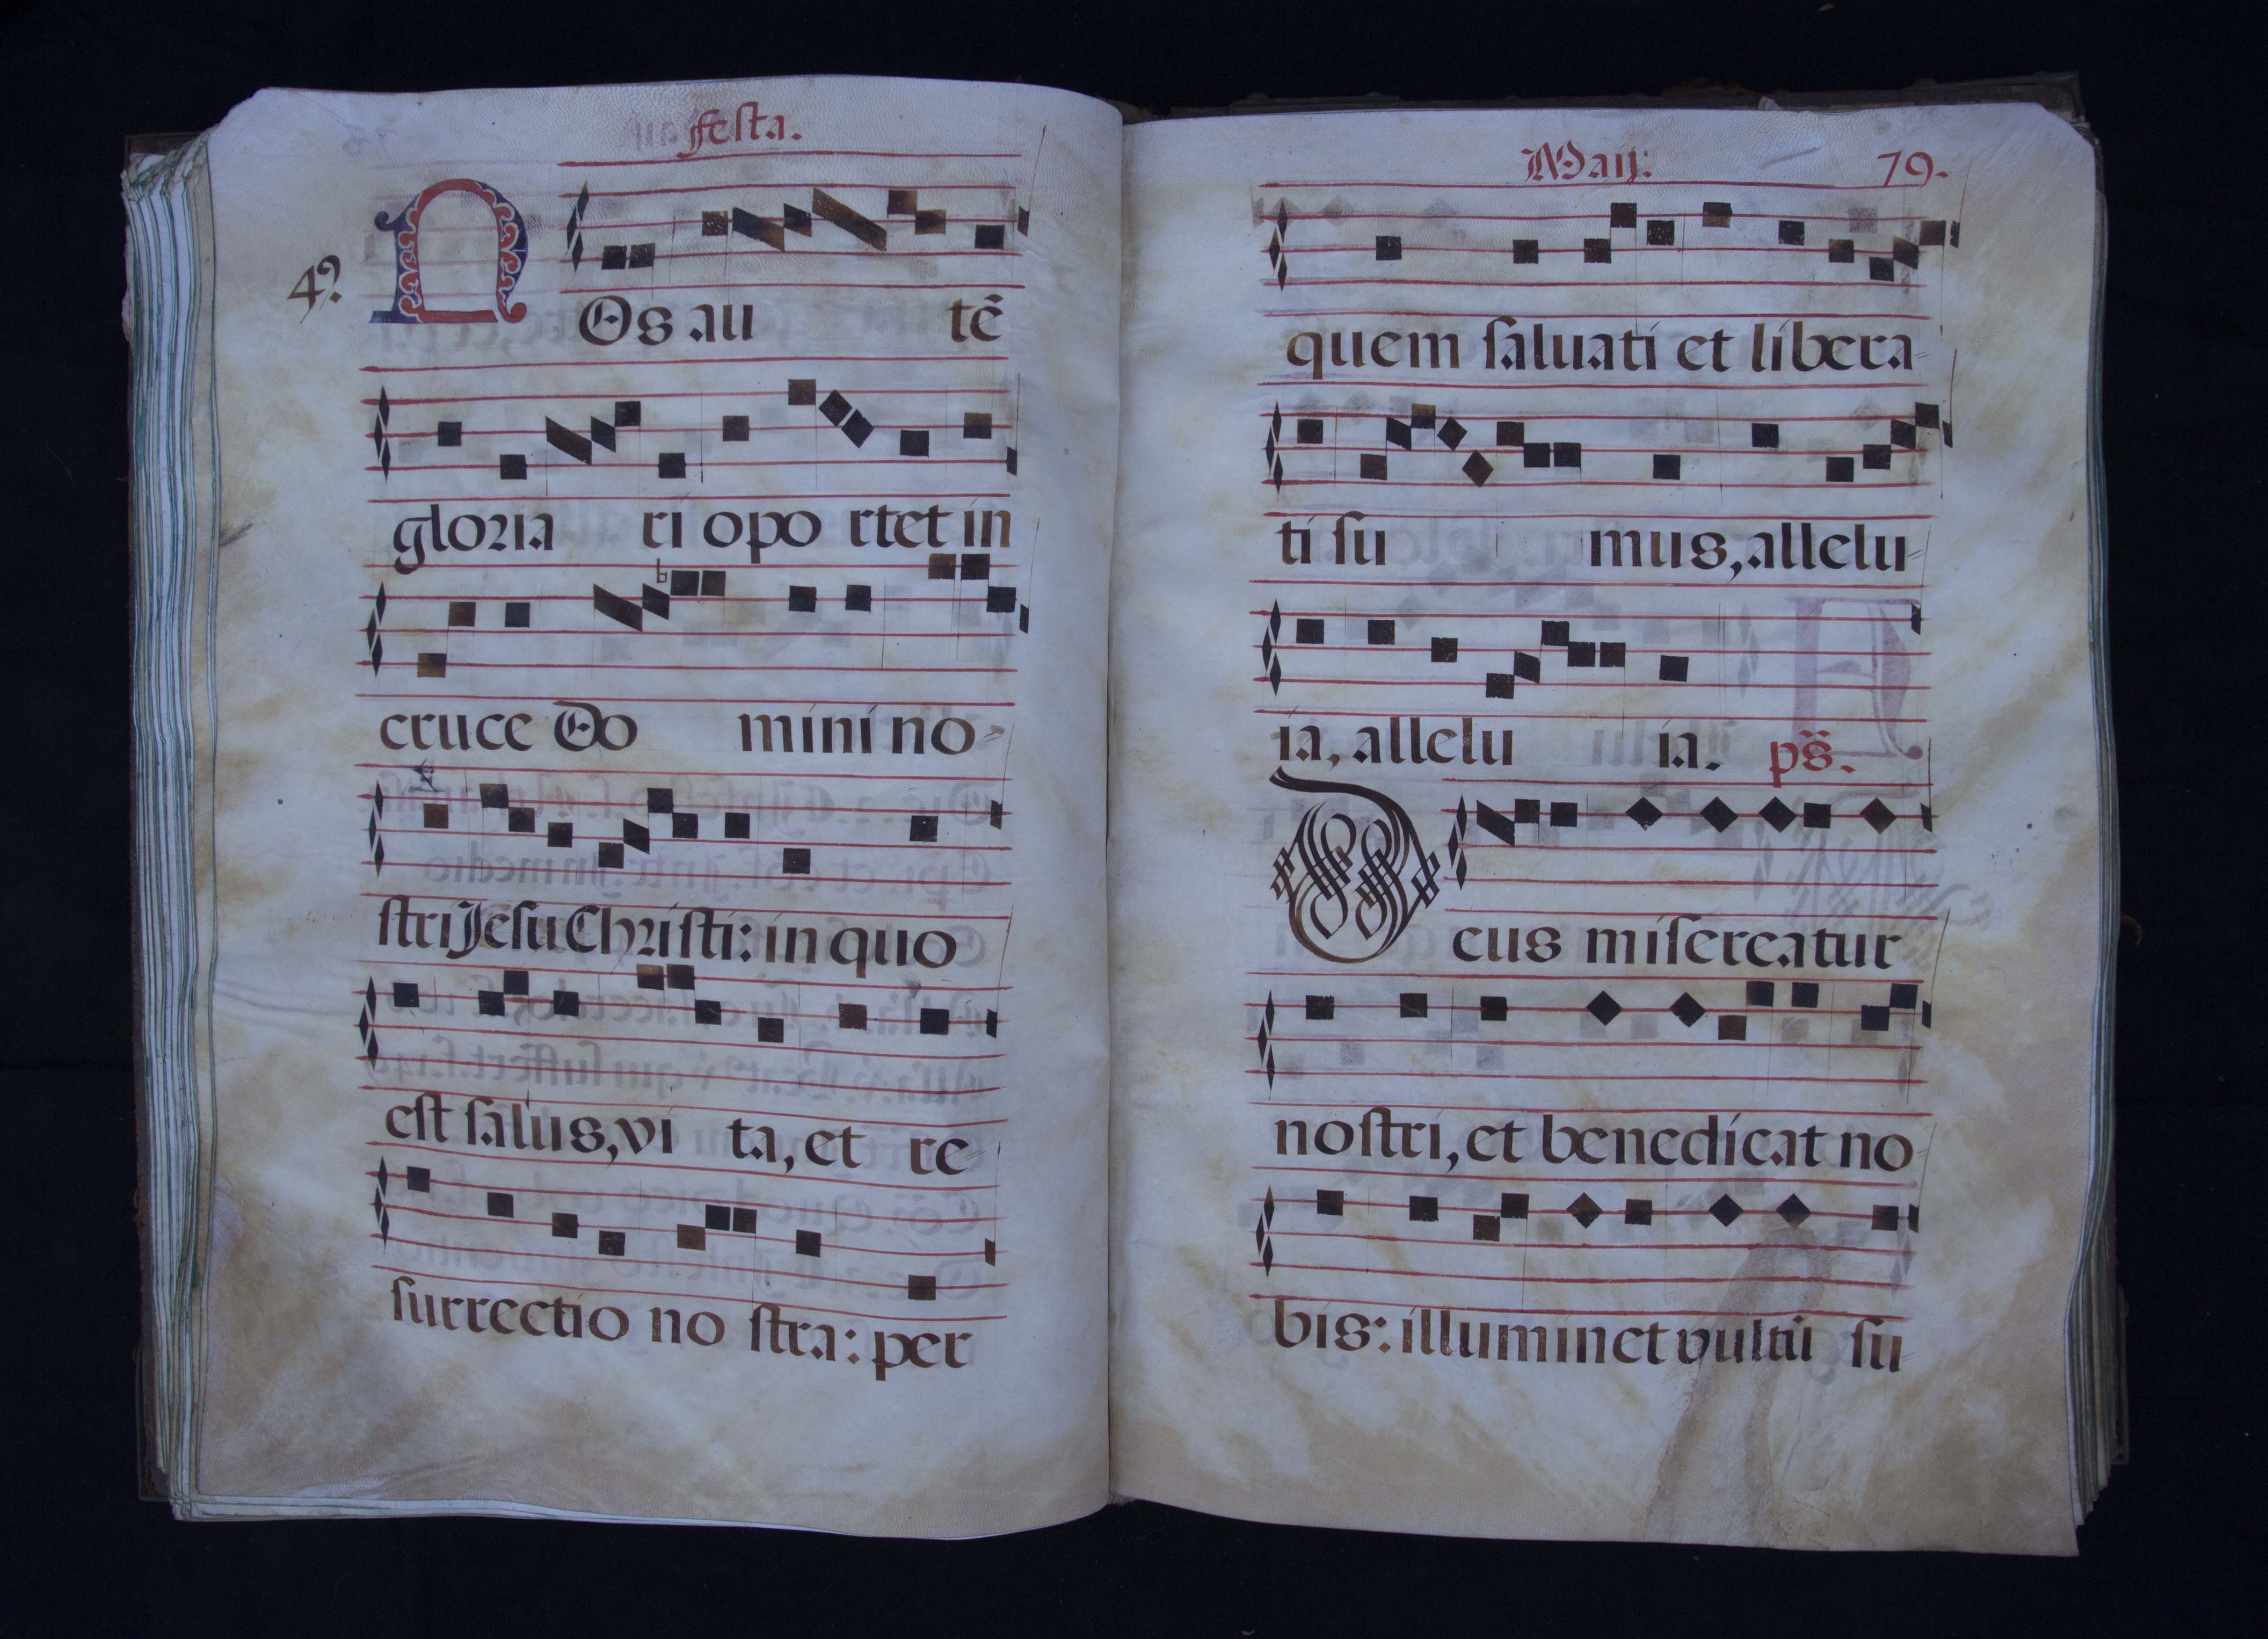 festa.
4º
NOs au tẽ
gloria ri opo rtet in
cruce Do mini no-
stri Jesu Christi: in quo
est salus, vi ta, et re-
surrectio no stra: per
Maij: 79.
quem saluati et libera-
ti su mus, allelu-
ia, allelu ia. ps̈.
Deus misereatur
nostri, et benedicat no-
bis: illuminet vultũ su-